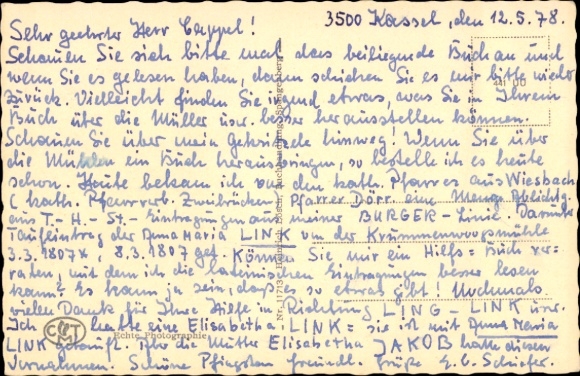 3500 Kassel, den 12.5.78.
Sehr geehrter Herr Cappel!
Schauen Sie sich bitte mal das beiliegende Buch an und
wenn Sie es gelesen haben, dann schicken Sie es mir bitte wieder
zurück. Vielleicht finden Sie irgend etwas, was Sie in Ihrem
Buch über die Müller usw. besser herausstellen können.
Schauen Sie über mein hinweg! Wenn Sie über
die Mühlen ein Buch herausbringen, so bestelle ich es heute
schon. Heute bekam ich von den kath. Pfarrers aus Wiesbach
(kath. Pfarrverb. Zweibrücken Pfarrer Dörr eine Menge
aus T.-H.-St.-Eintragungen aus meiner BURGER-Linie. Darunter
Taufeintrag der Anna Maria LINK von der Krummenwoogsmühle
3.3.1807*, 8.3.1807 get. Können Sie mir ein Hilfs=Buch ver-
raten, mit dem ich die lateinischen Eintragungen besser lesen
kann? Es kann ja sein, dass es so etwas gibt! Nochmals
vielen Dank für Ihre Hilfe in Richtung LING-LINK usw.
Ich hatte eine Elisabetha LINK= sie ist mit Anna Maria
LINK getauft. Aber die Mutter Elisabetha JAKOB hatte diesen
Vornamen. Schöne Pfingsten freundl. Grüße E. C. Schäfer.
CTM
Echte Photographie